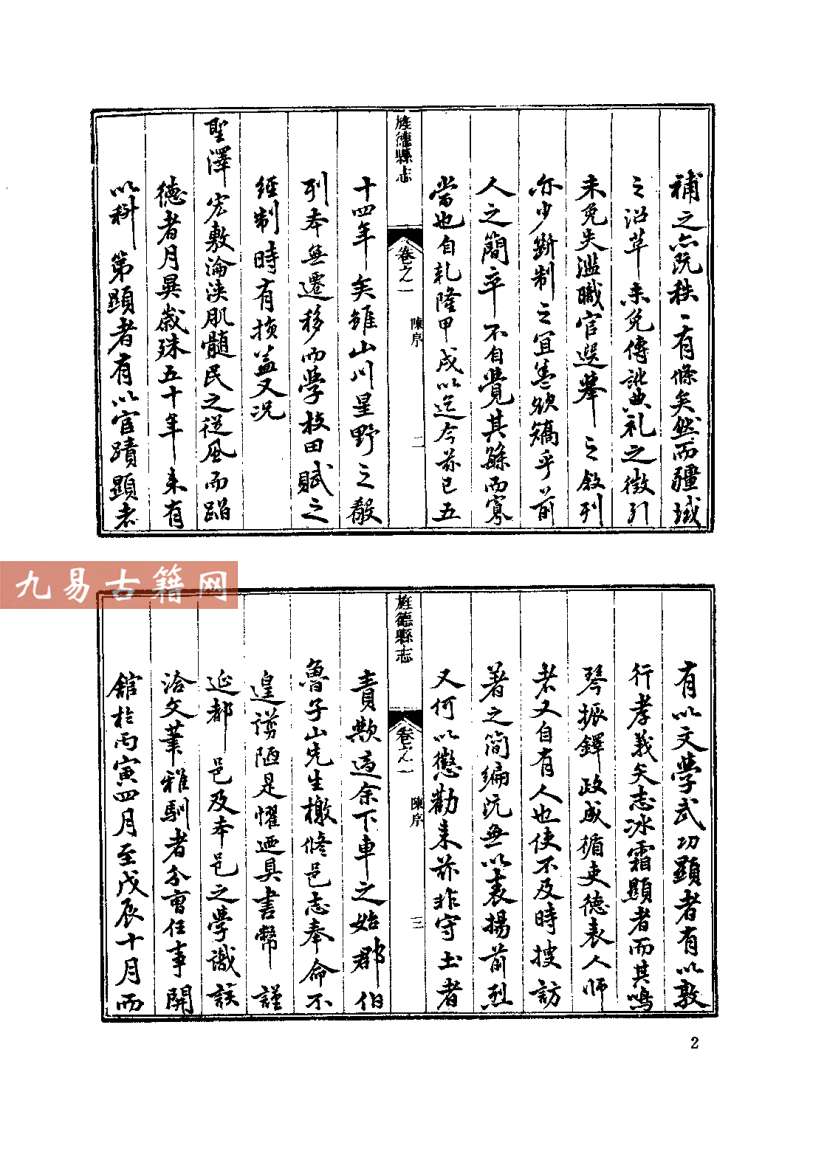 補之亦既秩〻有條矣然而疆域
之沿革未免傳訛典禮之徵引
未免失濫職官選舉之敘列
亦少斷制之宜葢欲矯乎前
人之簡率不自覺其繇而寡
當也自乾隆甲戌以迄今茲已五
旌德縣志
卷之一
陳序
二
十四年矣雖山川星野之殽
列本無遷移而學校田賦之
經制時有損益又況
聖澤宏敷淪浹肌髓民之從風而蹈
德者月異歲殊五十年来有
以科第顯者有以宦蹟顯者
九易古籍网
有以文學武功顯者有以敦
行孝義矢志冰霜顯者而其鳴
琴振鐸政成循吏德表人師
者又自有人也使不及時搜訪
著之簡編既無以表揚前烈
又何以懲勸来茲非守土者
旌德縣志
卷之一
陳序
三
責歟適余下車之始郡伯
魯子山先生檄修邑志奉命不
遑謭陋是懼迺具書幣謹
延都邑及本邑之學識該
洽文筆雅馴者分曹任事開
館於丙寅四月至戊辰十月而
2